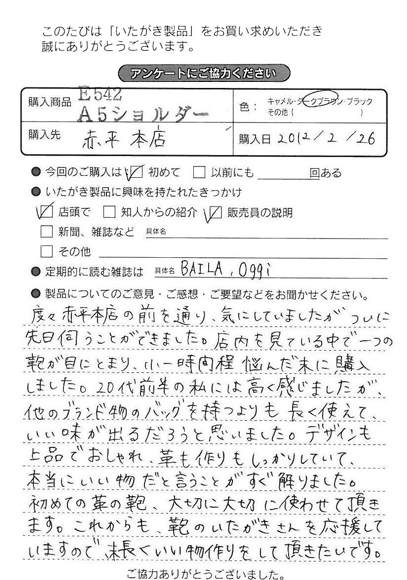 このたびは「いたがき製品」をお買い求めいただき
誠にありがとうございます。
アンケートにご協力ください
購入商品 E542
A5ショルダー
色： キャメル・ダークブラウン・ブラック
その他（ ）
購入先 赤平本店
購入日 2012/2/26
● 今回のご購入は ☑ 初めて □ 以前にも 回ある
● いたがき製品に興味を持たれたきっかけ
☑ 店頭で □ 知人からの紹介 ☑ 販売員の説明
□ 新聞、雑誌など 具体名
□ その他
● 定期的に読む雑誌は 具体名 BAILA, Oggi
● 製品についてのご意見・ご感想・ご要望などをお聞かせください。
度々赤平本店の前を通り、気にしていましたがついに
先日伺うことができました。店内を見ている中で一つの
鞄が目にとまり、小一時間程悩んだ末に購入
しました。20代前半の私には高く感じましたが、
他のブランド物のバッグを持つよりも長く使えて、
いい味が出るだろうと思いました。デザインも
上品でおしゃれ、革も作りもしっかりしていて、
本当にいい物だと言うことがすぐ解りました。
初めての革の鞄、大切に大切に使わせて頂き
ます。これからも、鞄のいたがきさんを応援して
いますので、末長くいい物作りをして頂きたいです。
ご協力ありがとうございました。